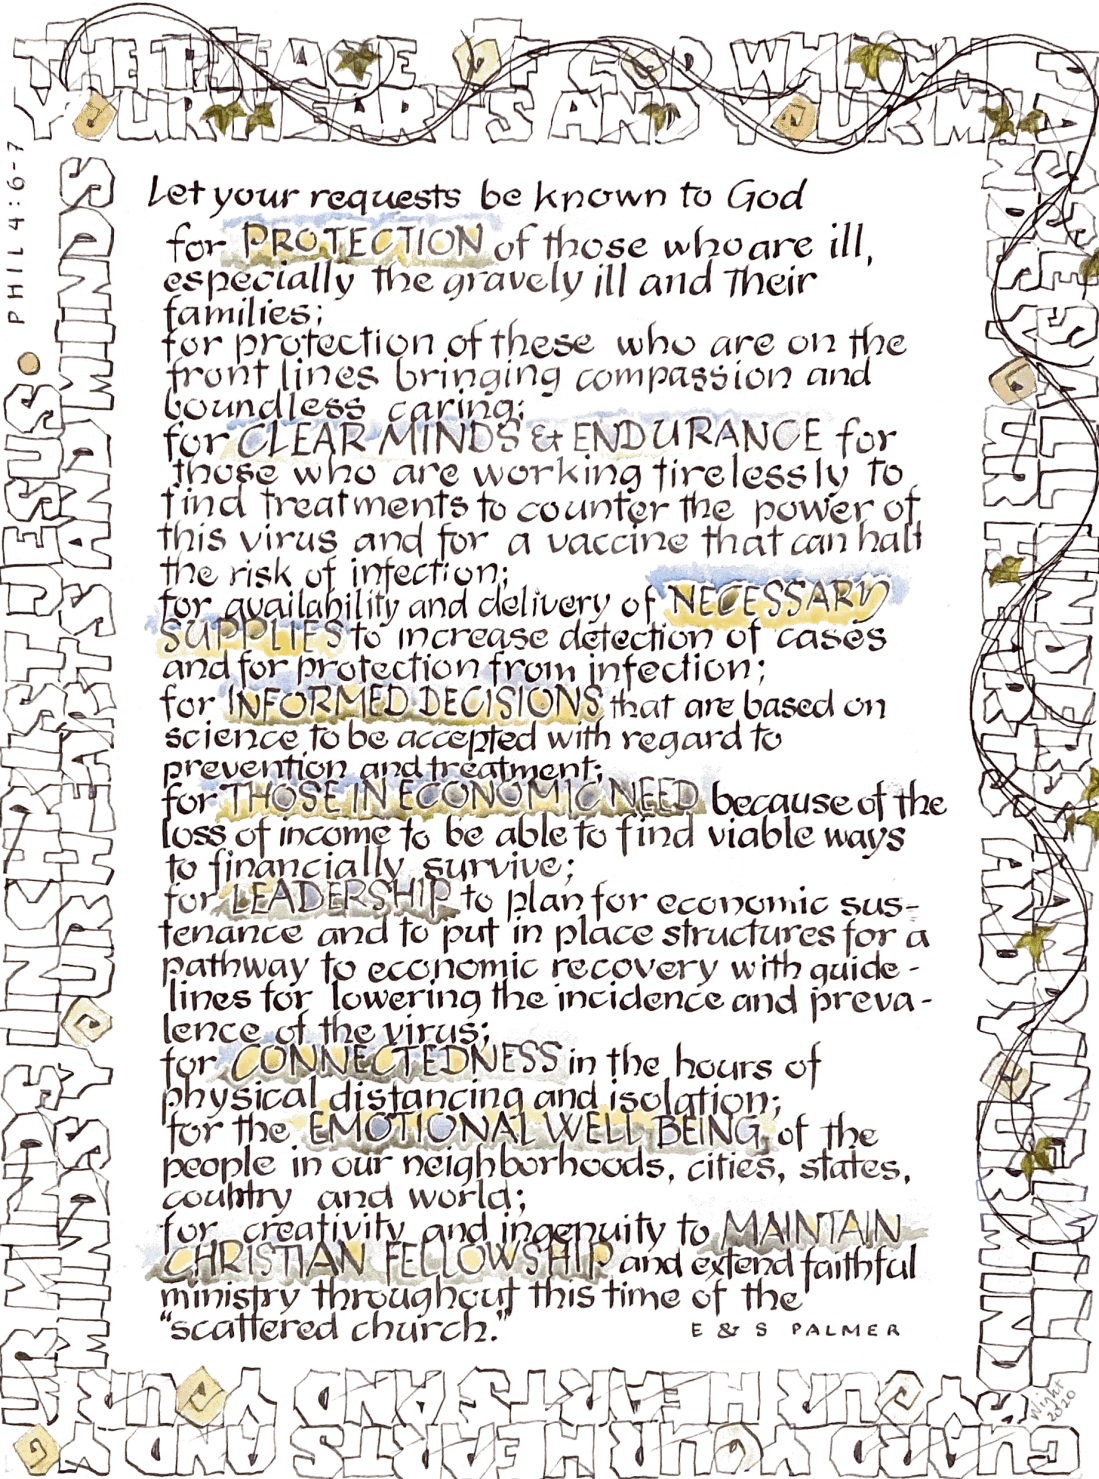 THE PEACE OF GOD WHICH
PASSES ALL UNDERSTANDING WILL
GUARD YOUR HEARTS AND YO
UR MINDS IN CHRIST JESUS •
PHIL 4:6-7
YOUR HEARTS AND YOUR M
INDS YOUR HEARTS AND YOUR MINDS
YOUR HEARTS AND YOUR
MINDS YOUR HEARTS AND MINDS
Let your requests be known to God
for PROTECTION of those who are ill,
especially the gravely ill and their
families;
for protection of these who are on the
front lines bringing compassion and
boundless caring;
for CLEAR MINDS & ENDURANCE for
those who are working tirelessly to
find treatments to counter the power of
this virus and for a vaccine that can halt
the risk of infection;
for availability and delivery of NECESSARY
SUPPLIES to increase detection of cases
and for protection from infection;
for INFORMED DECISIONS that are based on
science to be accepted with regard to
prevention and treatment;
for THOSE IN ECONOMIC NEED because of the
loss of income to be able to find viable ways
to financially survive;
for LEADERSHIP to plan for economic sus-
tenance and to put in place structures for a
pathway to economic recovery with guide-
lines for lowering the incidence and preva-
lence of the virus;
for CONNECTEDNESS in the hours of
physical distancing and isolation;
for the EMOTIONAL WELL BEING of the
people in our neighborhoods, cities, states,
country and world;
for creativity and ingenuity to MAINTAIN
CHRISTIAN FELLOWSHIP and extend faithful
ministry throughout this time of the
"scattered church."
E & S PALMER
Wight
2020